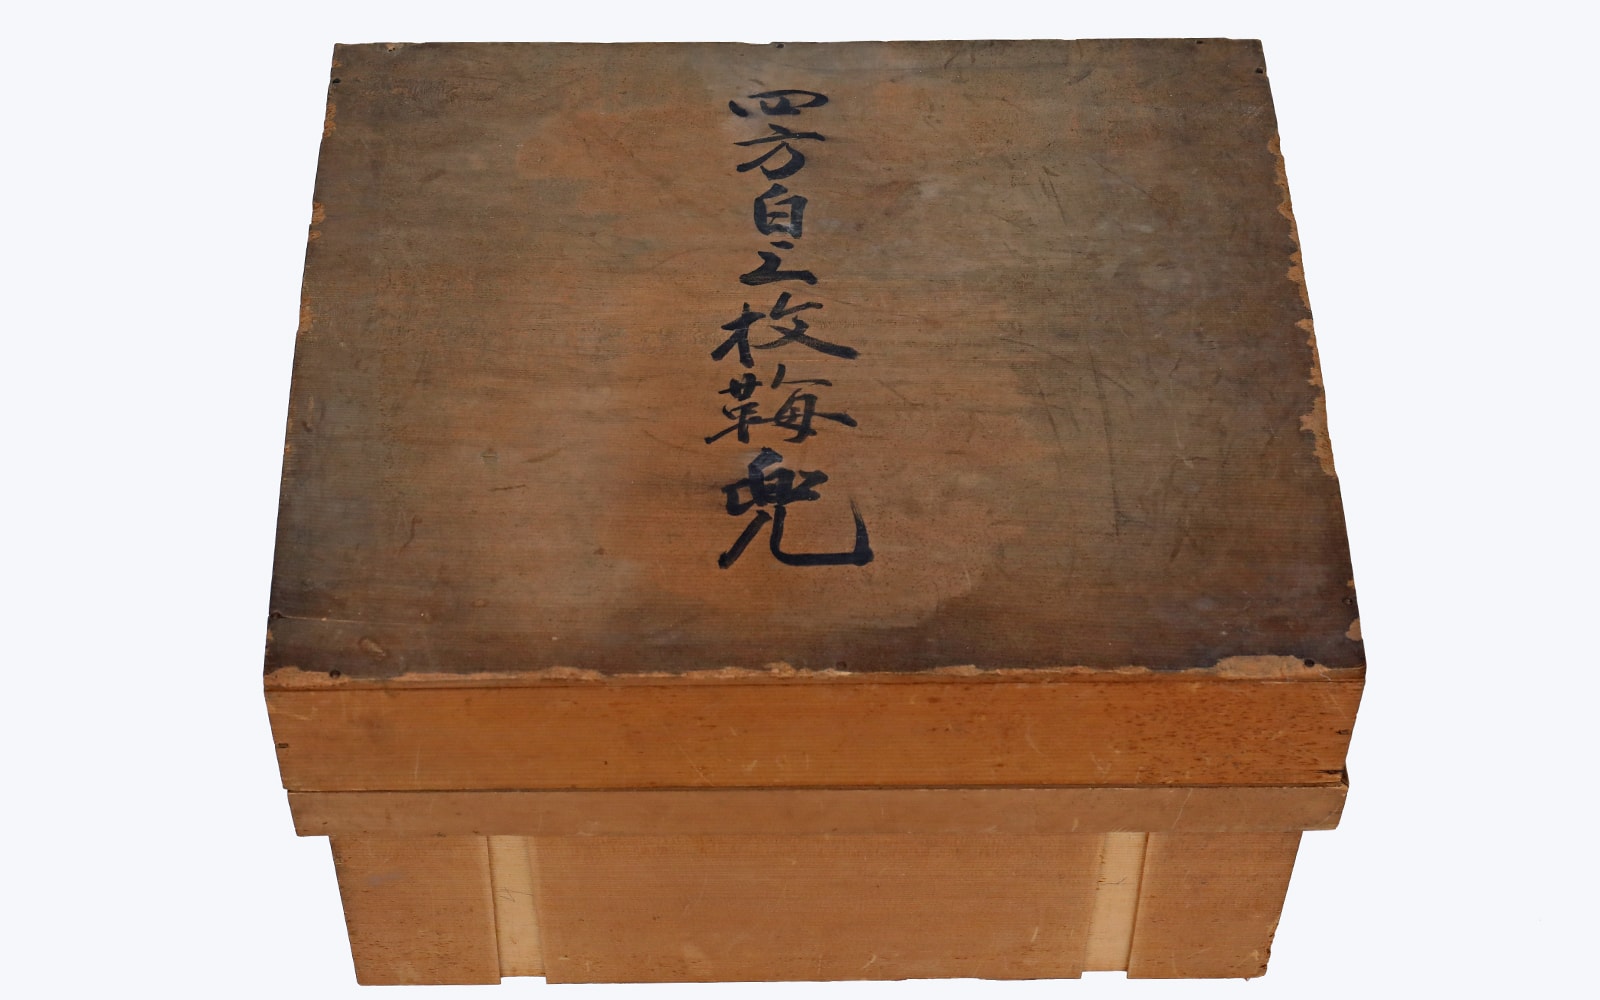 四方白三枚𩊱兜